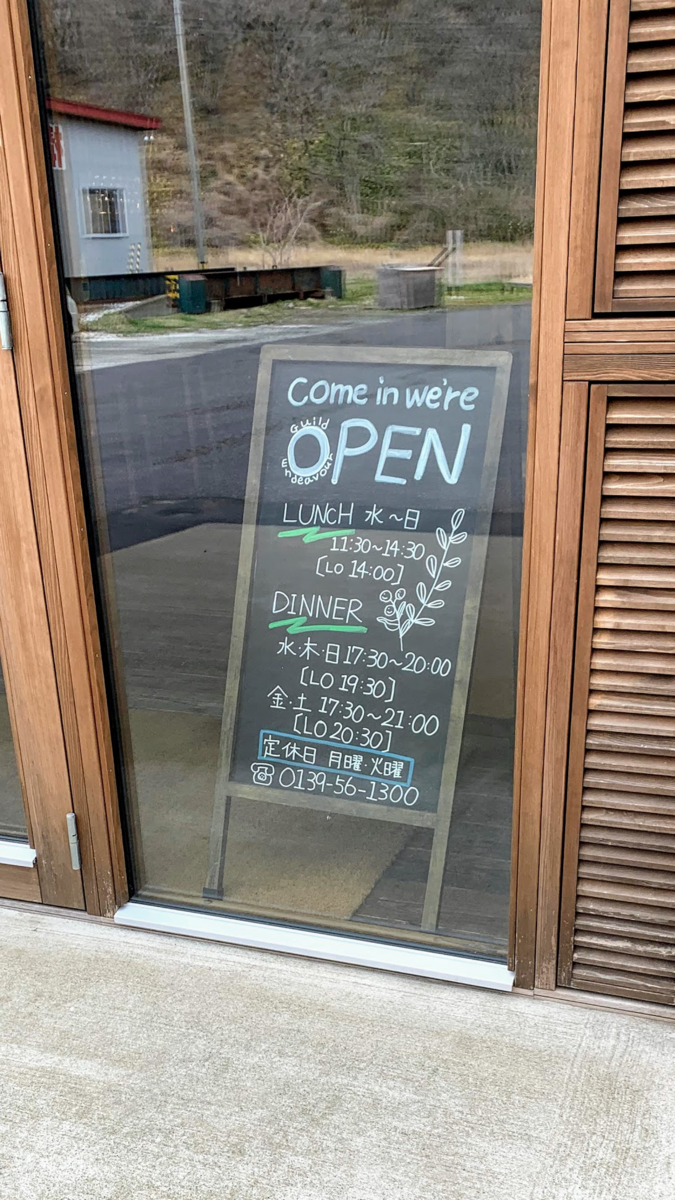 Come in we're
OPEN
Guild
Endeavour
LUNCH 水~日
11:30~14:30
[LO 14:00]
DINNER
水・木・日 17:30~20:00
[LO 19:30]
金・土 17:30~21:00
[LO 20:30]
定休日 月曜・火曜
☎ 0139-56-1300